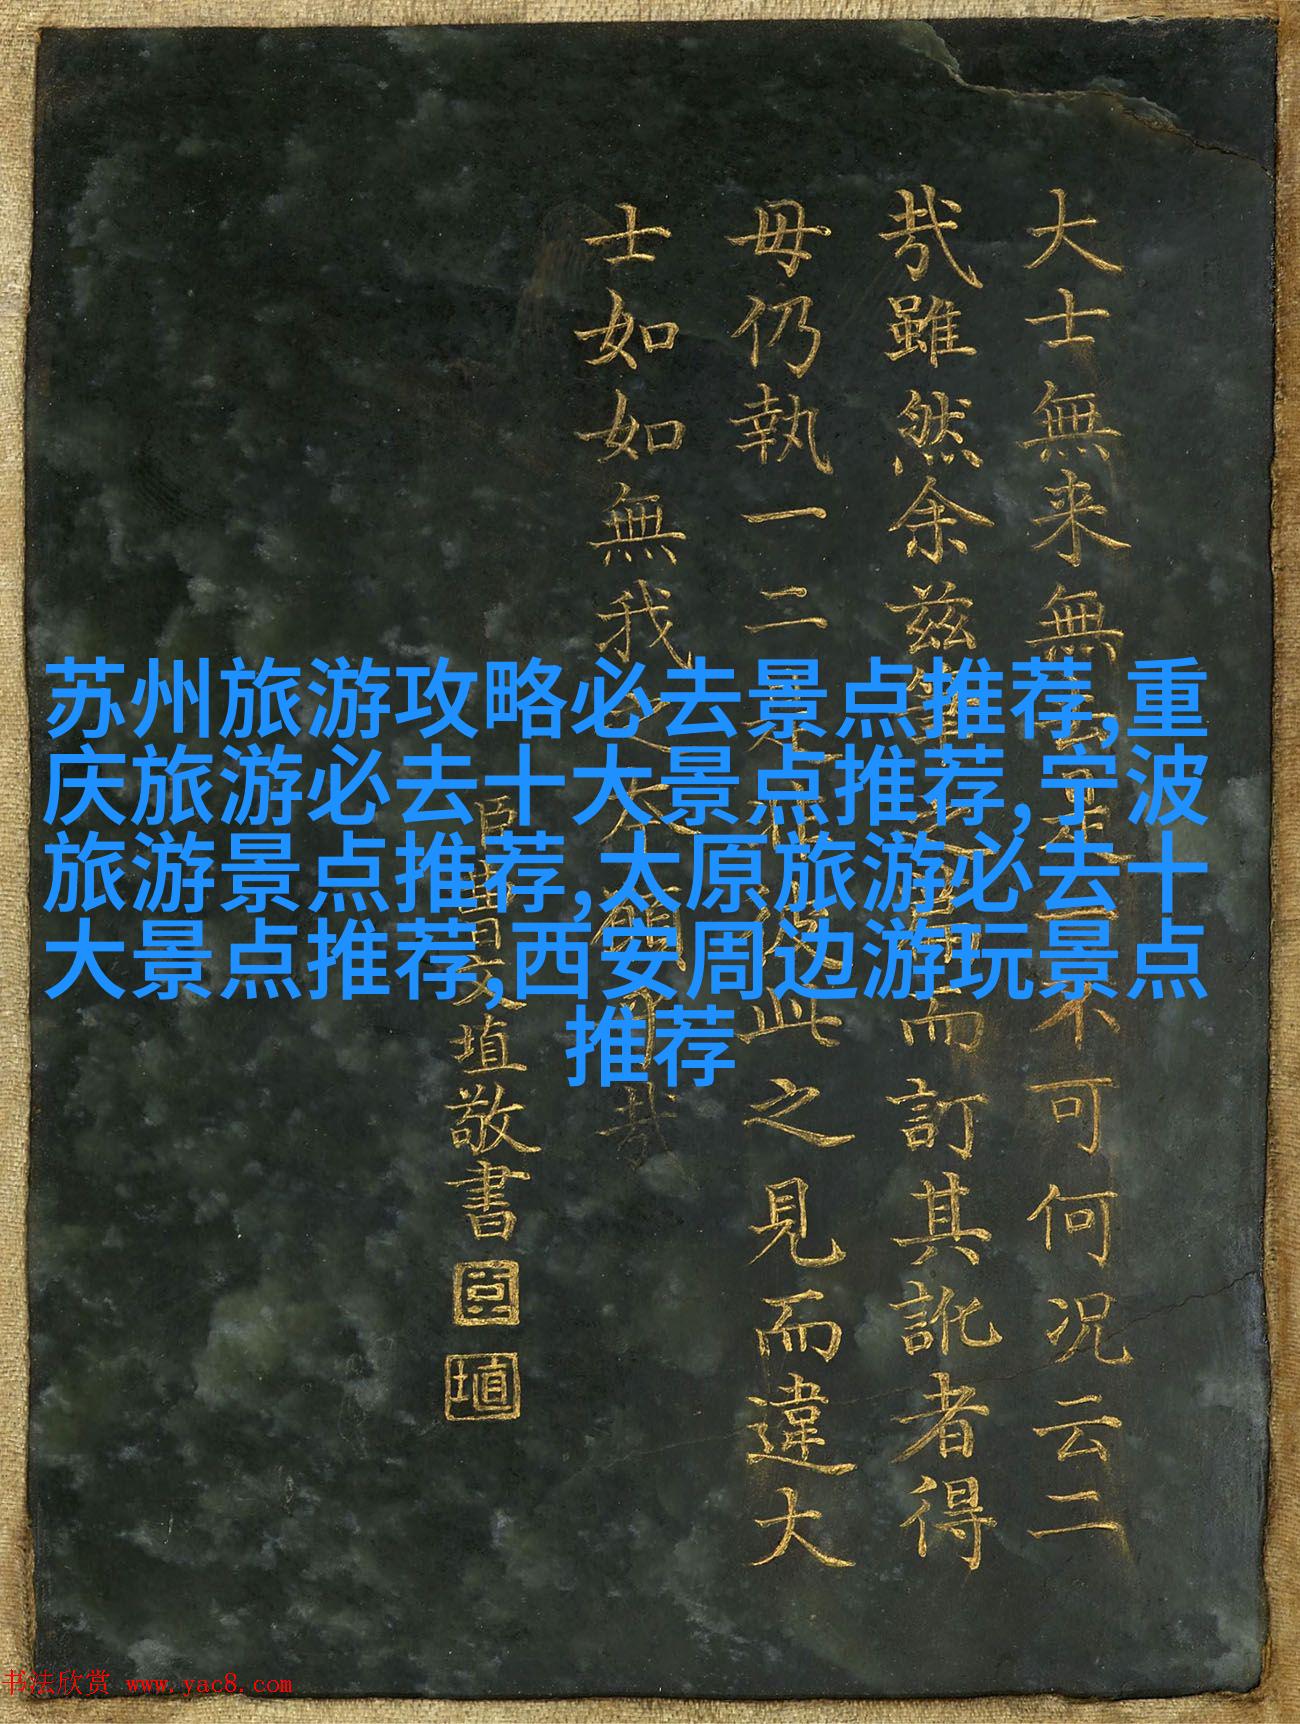 苏州旅游攻略必去景点推荐,重
庆旅游必去十大景点推荐,宁波
旅游景点推荐,太原旅游必去十
大景点推荐,西安周边游玩景点
推荐
大士無来無不可何况云二
哉雖然余兹而訂其訛者得
毋仍執一二彼此之見而違大
士如如無我之大哉
臣曹文埴敬書
臣
埴
书法欣赏 www.yac8.com